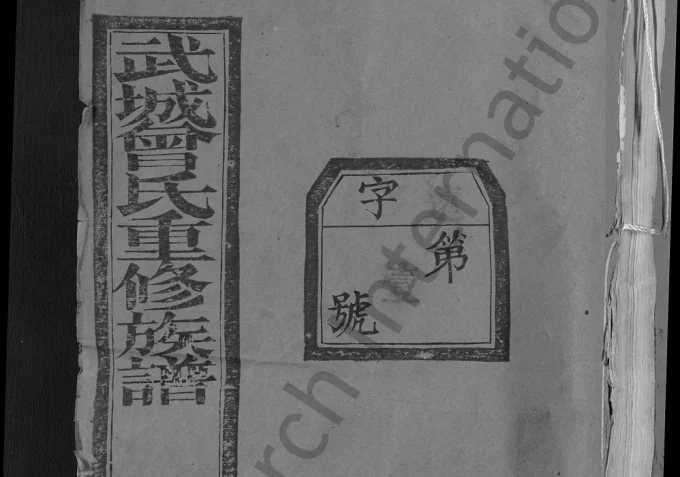 武城曾氏重修族譜
字
第
號
rch Internatio